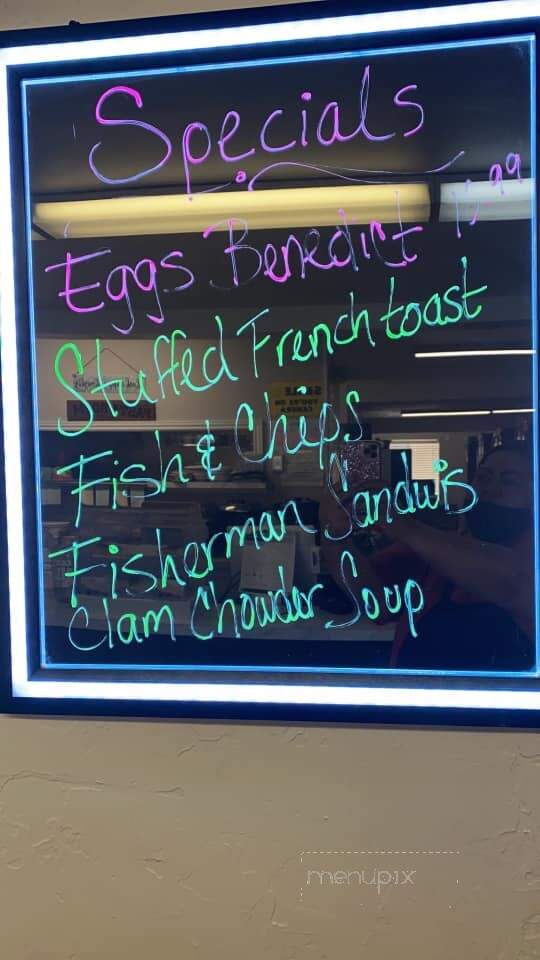 Specials
Eggs Benedict
Stuffed French toast
Fish & Chips
Fisherman Sandwis
Clam Chowder Soup
menupix